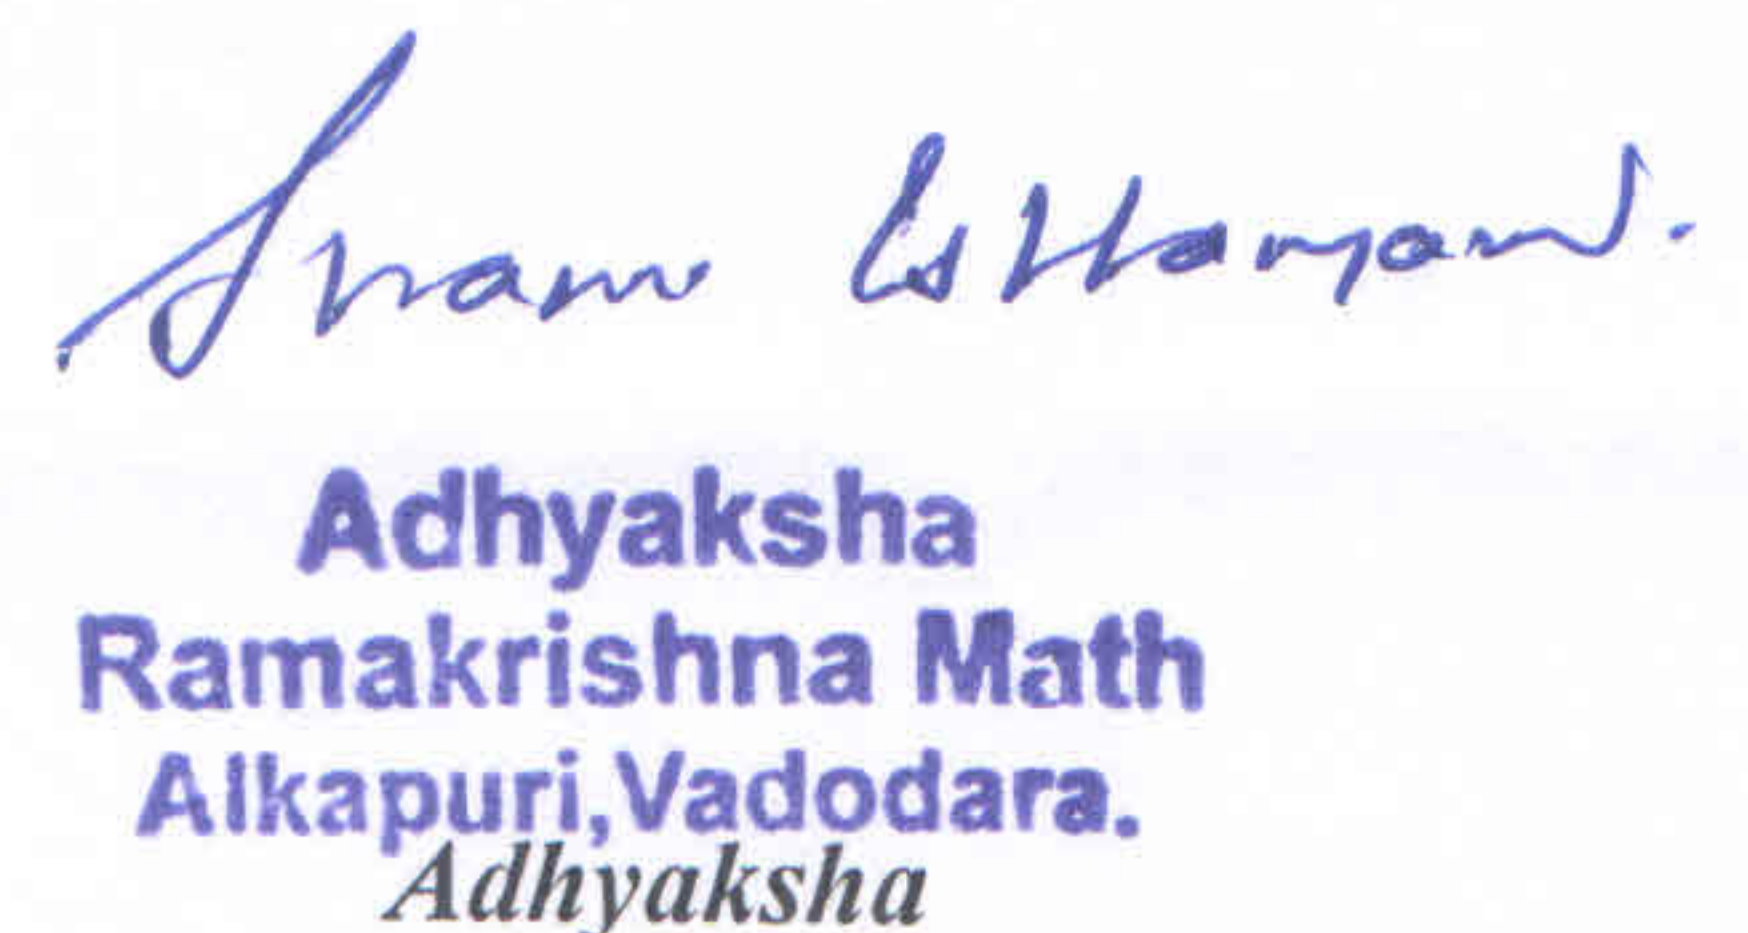 Swami
Adhyaksha
Ramakrishna Math
Alkapuri,Vadodara.
Adhyaksha